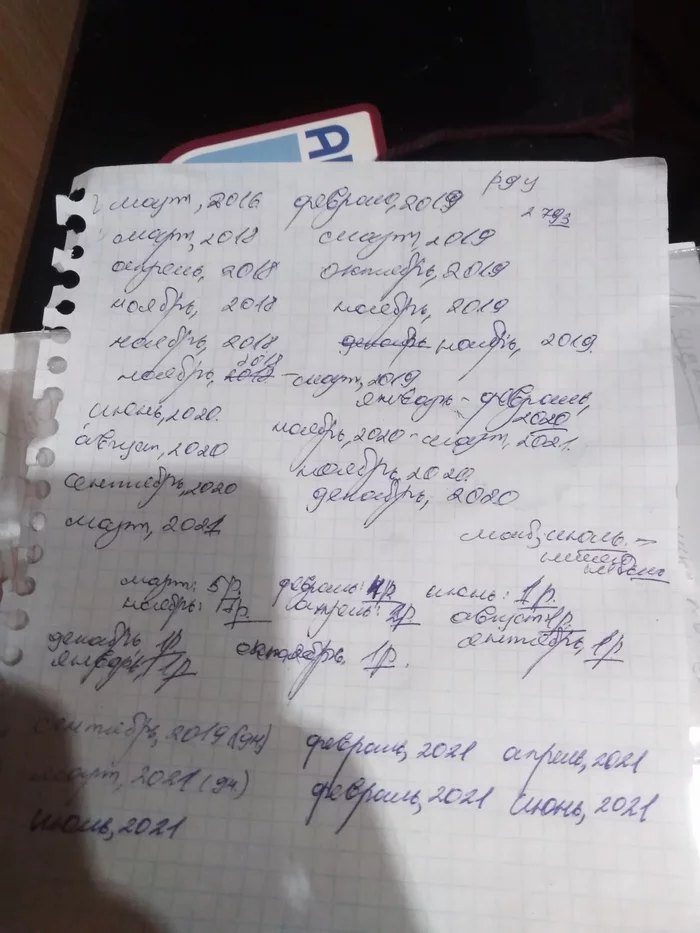 март, 2016 февраль, 2019 РДУ
2 793
март, 2018 март, 2019
апрель, 2018 октябрь, 2019
ноябрь, 2018 ноябрь, 2019
ноябрь, 2018 декабрь ноябрь, 2019.
2018
ноябрь, 2018 - март, 2019
январь - февраль,
июнь, 2020. 2020
ноябрь, 2020 - март, 2021.
август, 2020
ноябрь, 2020.
сентябрь, 2020 декабрь, 2020
март, 2021
июль. -
март: 5р. февраль: 4р июнь: 1р.
ноябрь: 7р. апрель: 2р август: 1р.
декабрь 1р сентябрь, 1р
январь, 1р октябрь. 1р.
сентябрь, 2019 (дч) февраль, 2021 апрель, 2021
март, 2021 (дч) февраль, 2021 июнь, 2021
июль, 2021